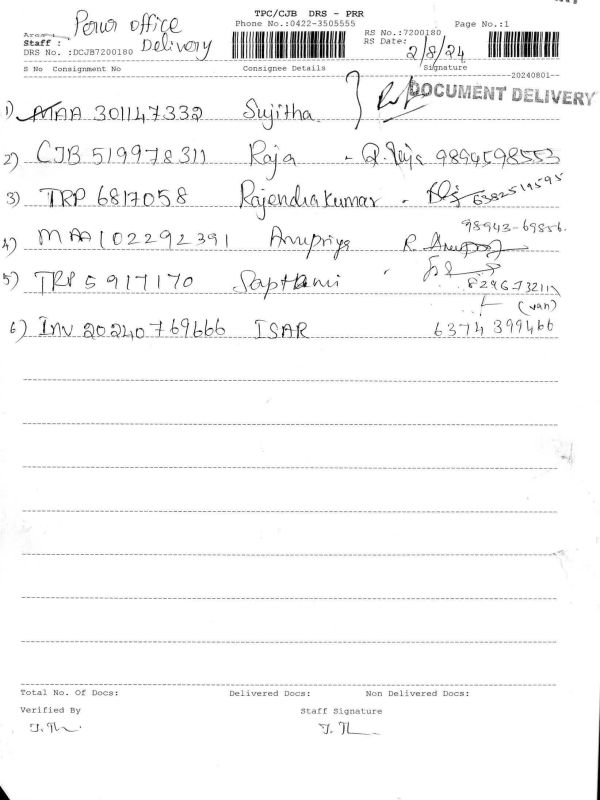 TPC/CJB DRS - PRR
Perur office Delivery
Phone No.:0422-3505555
Page No.:1
Area :
RS No.:7200180
Staff :
RS Date: 2/8/24
DRS No. :DCJB7200180
S No Consignment No Consignee Details Signature
20240801
DOCUMENT DELIVERY
1) MAA 301147332 Sujitha
2) CJB 519978311 Raja - Q. Raja 9894598553
3) TRP 6817058 Rajendrakumar - 6382519595
98943-69856.
4) MAA 102292391 Anupriya R.
5) TRP 5917170 Sapthami
8296732111
(van)
6) INV 20240769666 ISAR 6374399466
Total No. Of Docs: Delivered Docs: Non Delivered Docs:
Verified By Staff Signature